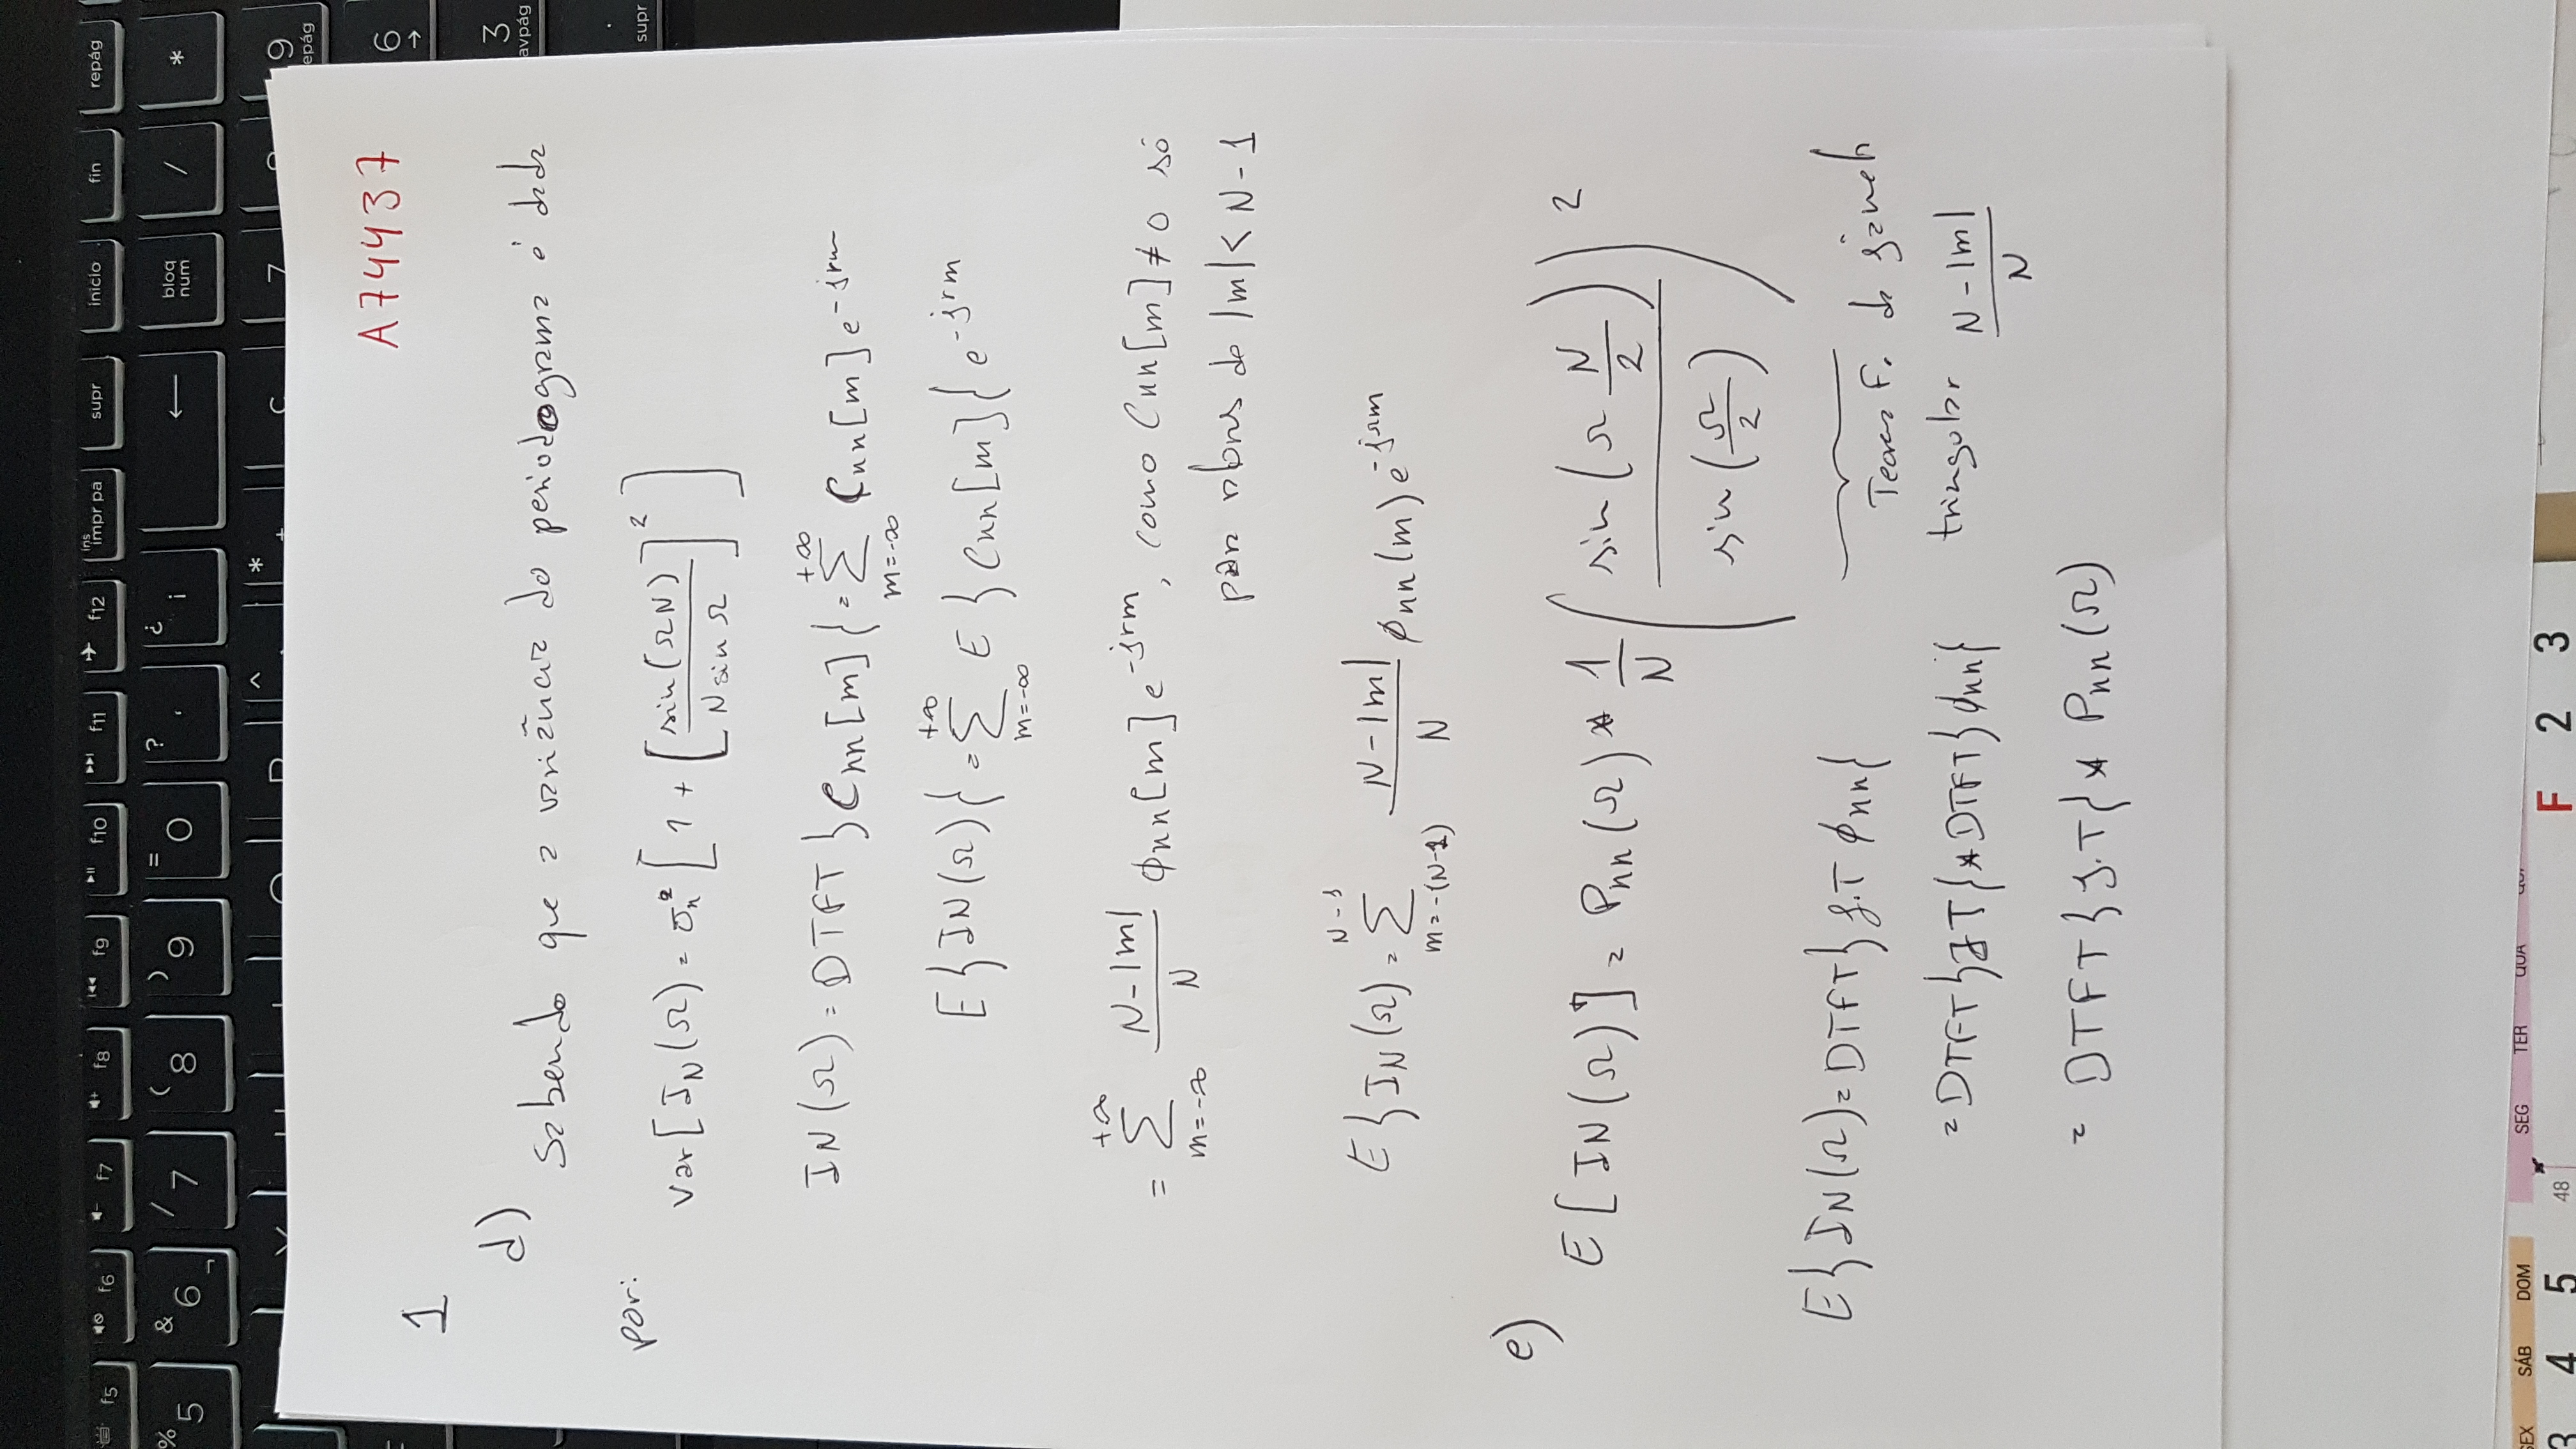 f5 f6 f7 f8 f9 f10 f11 f12 ins impr pa supr inicio fin repág
% 5 & 6 ¬ / 7 ( 8 ) 9 = 0 ? ' ¿ ¡ ← bloq num / *
^ * + 7 8 9 epág
6 →
3 avpág
. supr
A74437
1
d) Sabendo que a variância do periodograma é dada
por:
Var[I_N(Ω) = σ_n^2 [1 + [sin(ΩN) / N sin Ω]^2]
IN(Ω) = DTFT }C_nn[m]{ = Σ_{m=-∞}^{+∞} C_nn[m] e^{-jΩm}
E}IN(Ω){ = Σ_{m=-∞}^{+∞} E }C_nn[m]{ e^{-jΩm}
= Σ_{m=-∞}^{+∞} (N-|m|)/N ϕ_nn[m] e^{-jΩm}, como C_nn[m] ≠ 0 só
para valores de |m| < N-1
E}I_N(Ω) = Σ_{m=-(N-1)}^{N-1} (N-|m|)/N ϕ_nn(m) e^{-jΩm}
e)
E[IN(Ω)] = P_nn(Ω) * 1/N (sin(Ω N/2) / sin(Ω/2))^2
E}IN(Ω) = DTFT}J.T ϕ_nn{
F. da janela
= DTFT}J T{ * DTFT}ϕ_nn{ triangular (N-|m|)/N
= DTFT}J.T{ * P_nn(Ω)
SEX SÁB DOM SEG TER QUA QUI
3 4 5 48 F 2 3